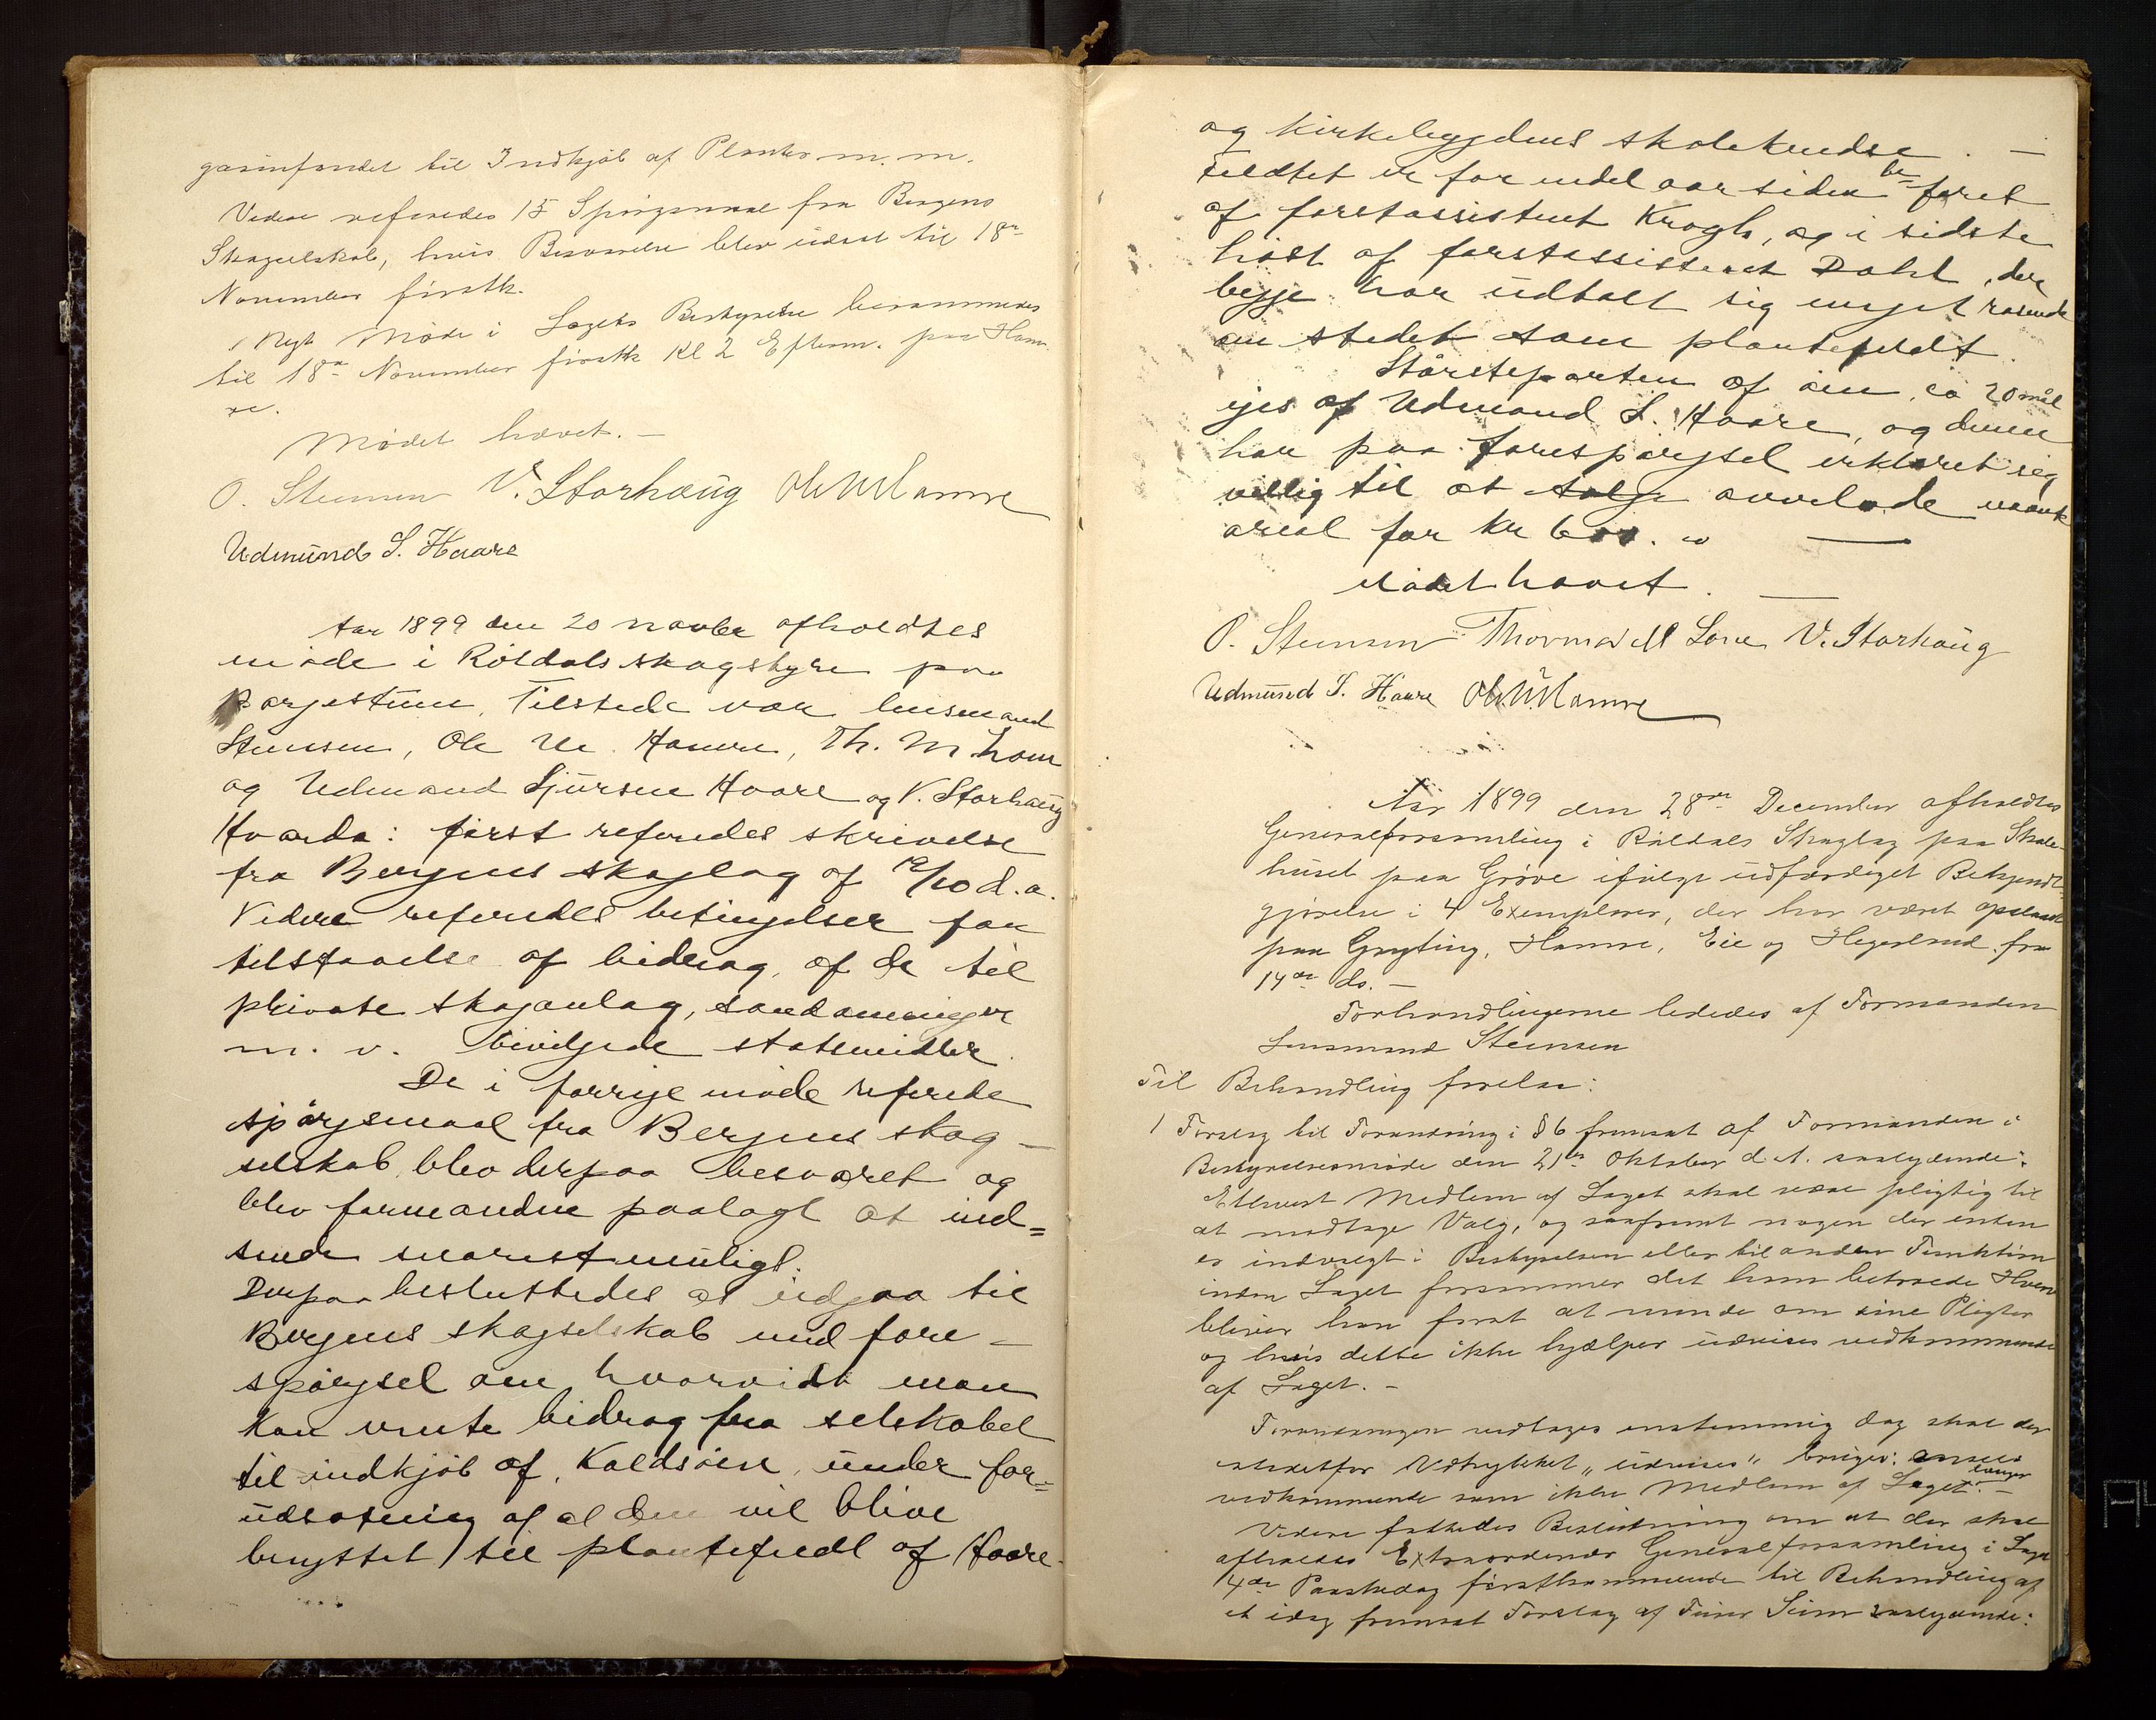 til Indkjøb af Planter m. m.
Videre refereredes 15 Spørgsmaal fra Bergens
Skogselskab, hvis Besvarelse blev udsat til 18de
November førstk.
Nyt Møde i Lagets Bestyrelse berammedes
til 18de November førstk Kl 2 Efterm. paa Ham-
re.
Mødet hævet. –
O. Steinsen V. Storhaug Ole M Hamre
Udmund S. Haare
Aar 1899 den 20 novbr afholdtes
møde i Röldals skogstyre paa
Tilstede var lensmand
Steinsen, Ole M. Hamre, Th. M Lone
og Udmund Sjursen Haare og V. Storhaug
Haarda: først referedes skrivelse
fra Bergens skoglag af 19/10 d. a.
Videre referedes betingelser for
tilstaaelse af bidrag, af de til
private skoganlæg,
m. v. bevilgede statsmidler.
De i forrige møde referede
spørgsmaal fra Bergens skog-
selskab blev derpaa besvaret og
blev formanden paalagt at ind=
sende snarest muligt.
Derpaa besluttedes at udgaa til
Bergens skogselskab med fore-
spørgsel om hvorvidt man
kan vente bidrag fra selskabet
til indkjøb af Koldsøien, under for=
udsætning af at den vil blive
benyttet til plantefeldt af Haare-
og Kirkebygdens skolekredse. –
Feldtet er for endel aar siden be=faret
af forstassistent Krogh, og i sidste
høst af forstassistent Dahl, der
begge har udtalt sig meget rosende
om stedet som plantefeldt.
Størsteparten af øien, ca 20 mål
ejes af Udmund S. Haare, og denne
har paa forespørgsel erklæret sig
villig til at sælge avvelade nævnte
areal for Kr 600. 00 —
Mødet hævet. —
O. Steinsen Thormod M Lone V. Storhaug
Udmund S. Haare Ole M. Hamre
Aar 1899 den 28de December afholdtes
Generalforsamling i Røldals Skoglag paa Skole-
huset paa Grøve ifølge udfærdiget Bekjendt-
gjørelse i 4 Exemplarer, der har været opslaaet
paa Gryting, Hamre, Eie og Hegerland fra
14de ds. –
Forhandlingerne lededes af Formanden
Lensmand Steinsen
Til Behandling forelaa:
1 Forslag til Forandring i § 6 fremsat af Formanden i
Bestyrelsesmøde den 21de Oktober d. A. saalydende:
Ethvert Medlem af Laget skal være pligtig til
at modtage Valg, og saafremt nogen der enten
er indvalgt i Bestyrelsen eller til anden Funktion
inden Laget forsømmer det ham betroede Hverv
bliver han først at minde om sine Pligter
og hvis dette ikke hjælper udvises vedkommende
af Laget. –
Forandringen vedtages enstemmig dog skal der
istedetfor Udtrykket „udvises“ bruges: ansees
vedkommende som ikke længer Medlem af Laget. –
Videre fattedes Beslutning om at der skal
afholdes Extraordinær Generalforsamling i Laget
4de Paaskedag førstkommende til Behandling af
et idag fremsat Forslag af Seim saalydende: